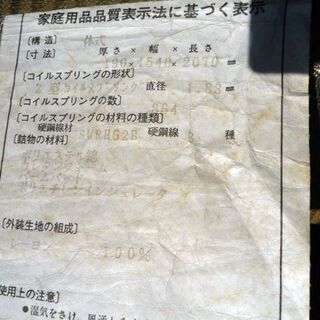 家庭用品品質表示法に基づく表示
〔構造〕 体式
〔寸法〕 厚さ × 幅 × 長さ
190×1540×2070 ㎜
〔コイルスプリングの形状〕
コイルスプリング 直径 1.83 ㎜
〔コイルスプリングの数〕
864
〔コイルスプリングの材料の種類〕
硬鋼線材 SWRH62B 硬鋼線 種
〔詰物の材料〕
ポリエステル綿
〔外装生地の組成〕
レーヨン 100%
使用上の注意〕
●湿気をさけ、風通し